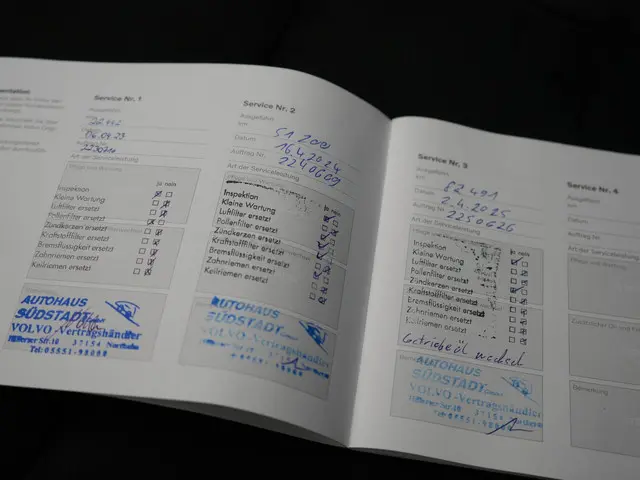 Service Nr. 1
Ausgeführt
km
06.04.23
Art der Serviceleistung
Pflege und Wartung
Ja nein
Inspektion
Kleine Wartung
Luftfilter ersetzt
Pollenfilter ersetzt
Zündkerzen ersetzt
Kraftstofffilter ersetzt
Bremsflüssigkeit ersetzt
Zahnriemen ersetzt
Keilriemen ersetzt
AUTOHAUS
SÜDSTADT GmbH
VOLVO-Vertragshändler
37154 Northeim
Tel: 05551-98080
Service Nr. 2
Ausgeführt
km 51 200
Datum 16.4.2024
Auftrag Nr. 2240609
Art der Serviceleistung
Ja nein
Inspektion
Kleine Wartung
Luftfilter ersetzt
Pollenfilter ersetzt
Zündkerzen ersetzt
Kraftstofffilter ersetzt
Bremsflüssigkeit ersetzt
Zahnriemen ersetzt
Keilriemen ersetzt
AUTOHAUS
SÜDSTADT GmbH
VOLVO-Vertragshändler
37154
Service Nr. 3
Ausgeführt
km 82 491
Datum 2.4.2025
Auftrag Nr. 2250626
Art der Serviceleistung
Ja nein
Inspektion
Kleine Wartung
Luftfilter ersetzt
Pollenfilter ersetzt
Zündkerzen ersetzt
Kraftstofffilter ersetzt
Bremsflüssigkeit ersetzt
Zahnriemen ersetzt
Keilriemen ersetzt
Getriebeöl wechsel
AUTOHAUS
SÜDSTADT GmbH
VOLVO-Vertragshändler
37154
Service Nr. 4
Ausgeführt
km
Datum
Auftrag Nr.
Art der Serviceleistung
Pflege und Wartung
Bemerkung